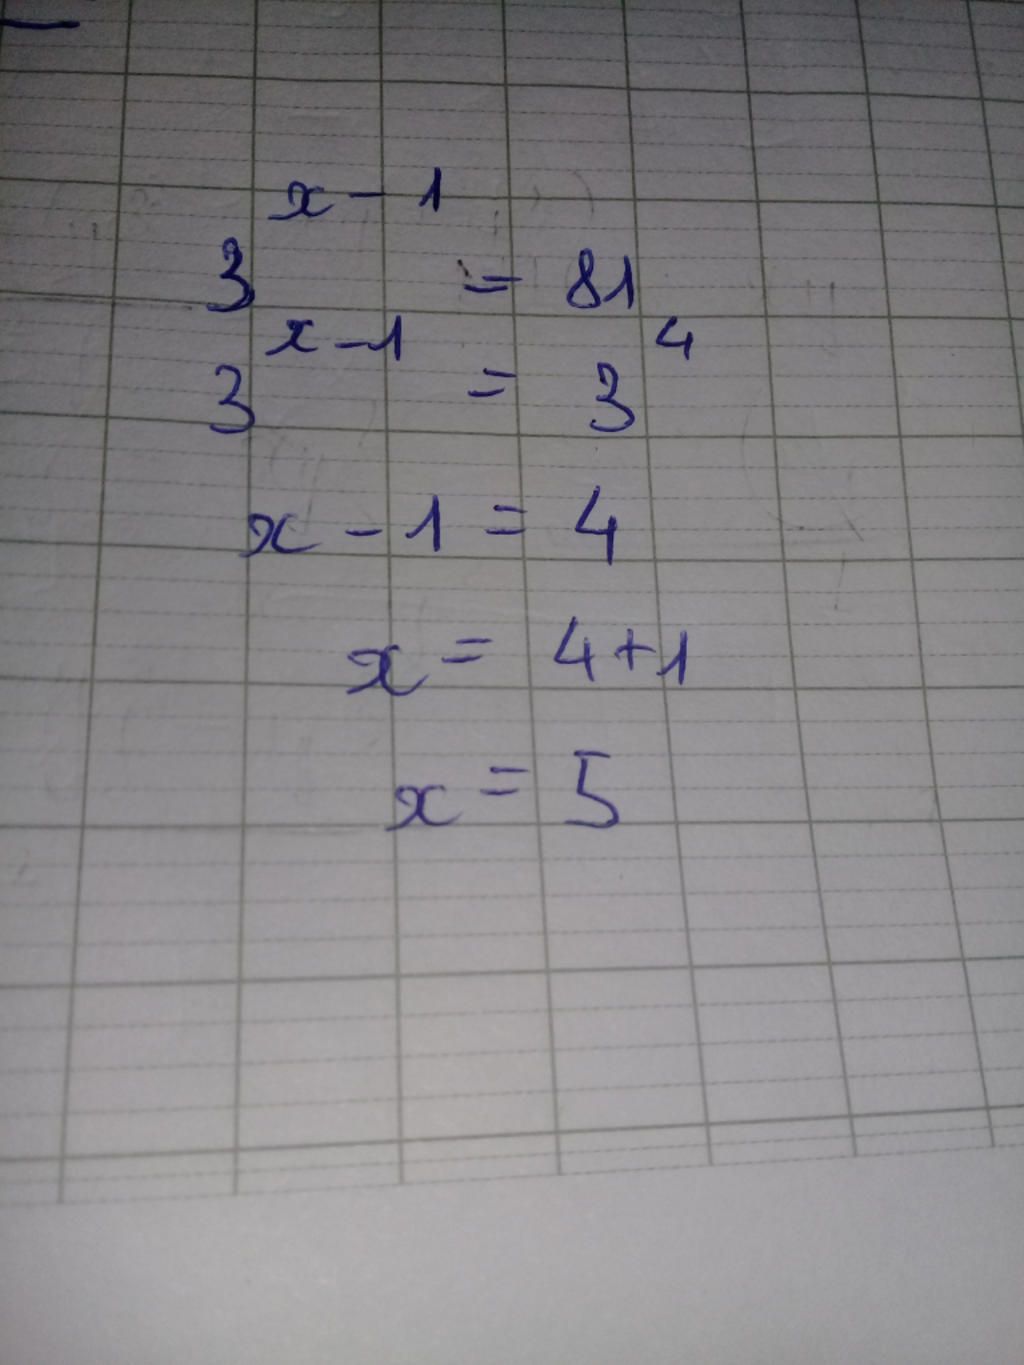 3^{x-1} = 81
3^{x-1} = 3^4
x - 1 = 4
x = 4+1
x = 5